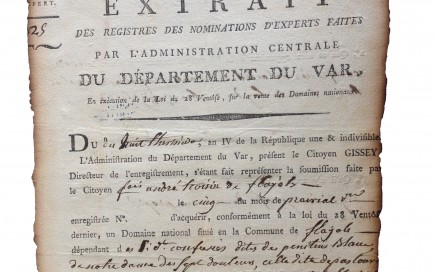 PERT.
25
EXTRAIT
DES REGISTRES DES NOMINATIONS D'EXPERTS FAITES
PAR L'ADMINISTRATION CENTRALE
DU DÉPARTEMENT DU VAR,
En exécution de la Loi du 28 Ventôse, sur la vente des Domaines nationaux.
DU du huit thermidor, an IV de la République une & indivisible,
L'Administration du Département du Var, présent le Citoyen GISSEY,
Directeur de l'enregistrement, s'étant fait représenter la soumission faite par
le Citoyen de flayosc
le cinq du mois de prairial
enregistrée N°. d'acquérir, conformément à la loi du 28 Ventôse
dernier, un Domaine national situé en la Commune de flayosc
dépendant des confreres dites des penitens blancs
de notre dame des sept douleurs,